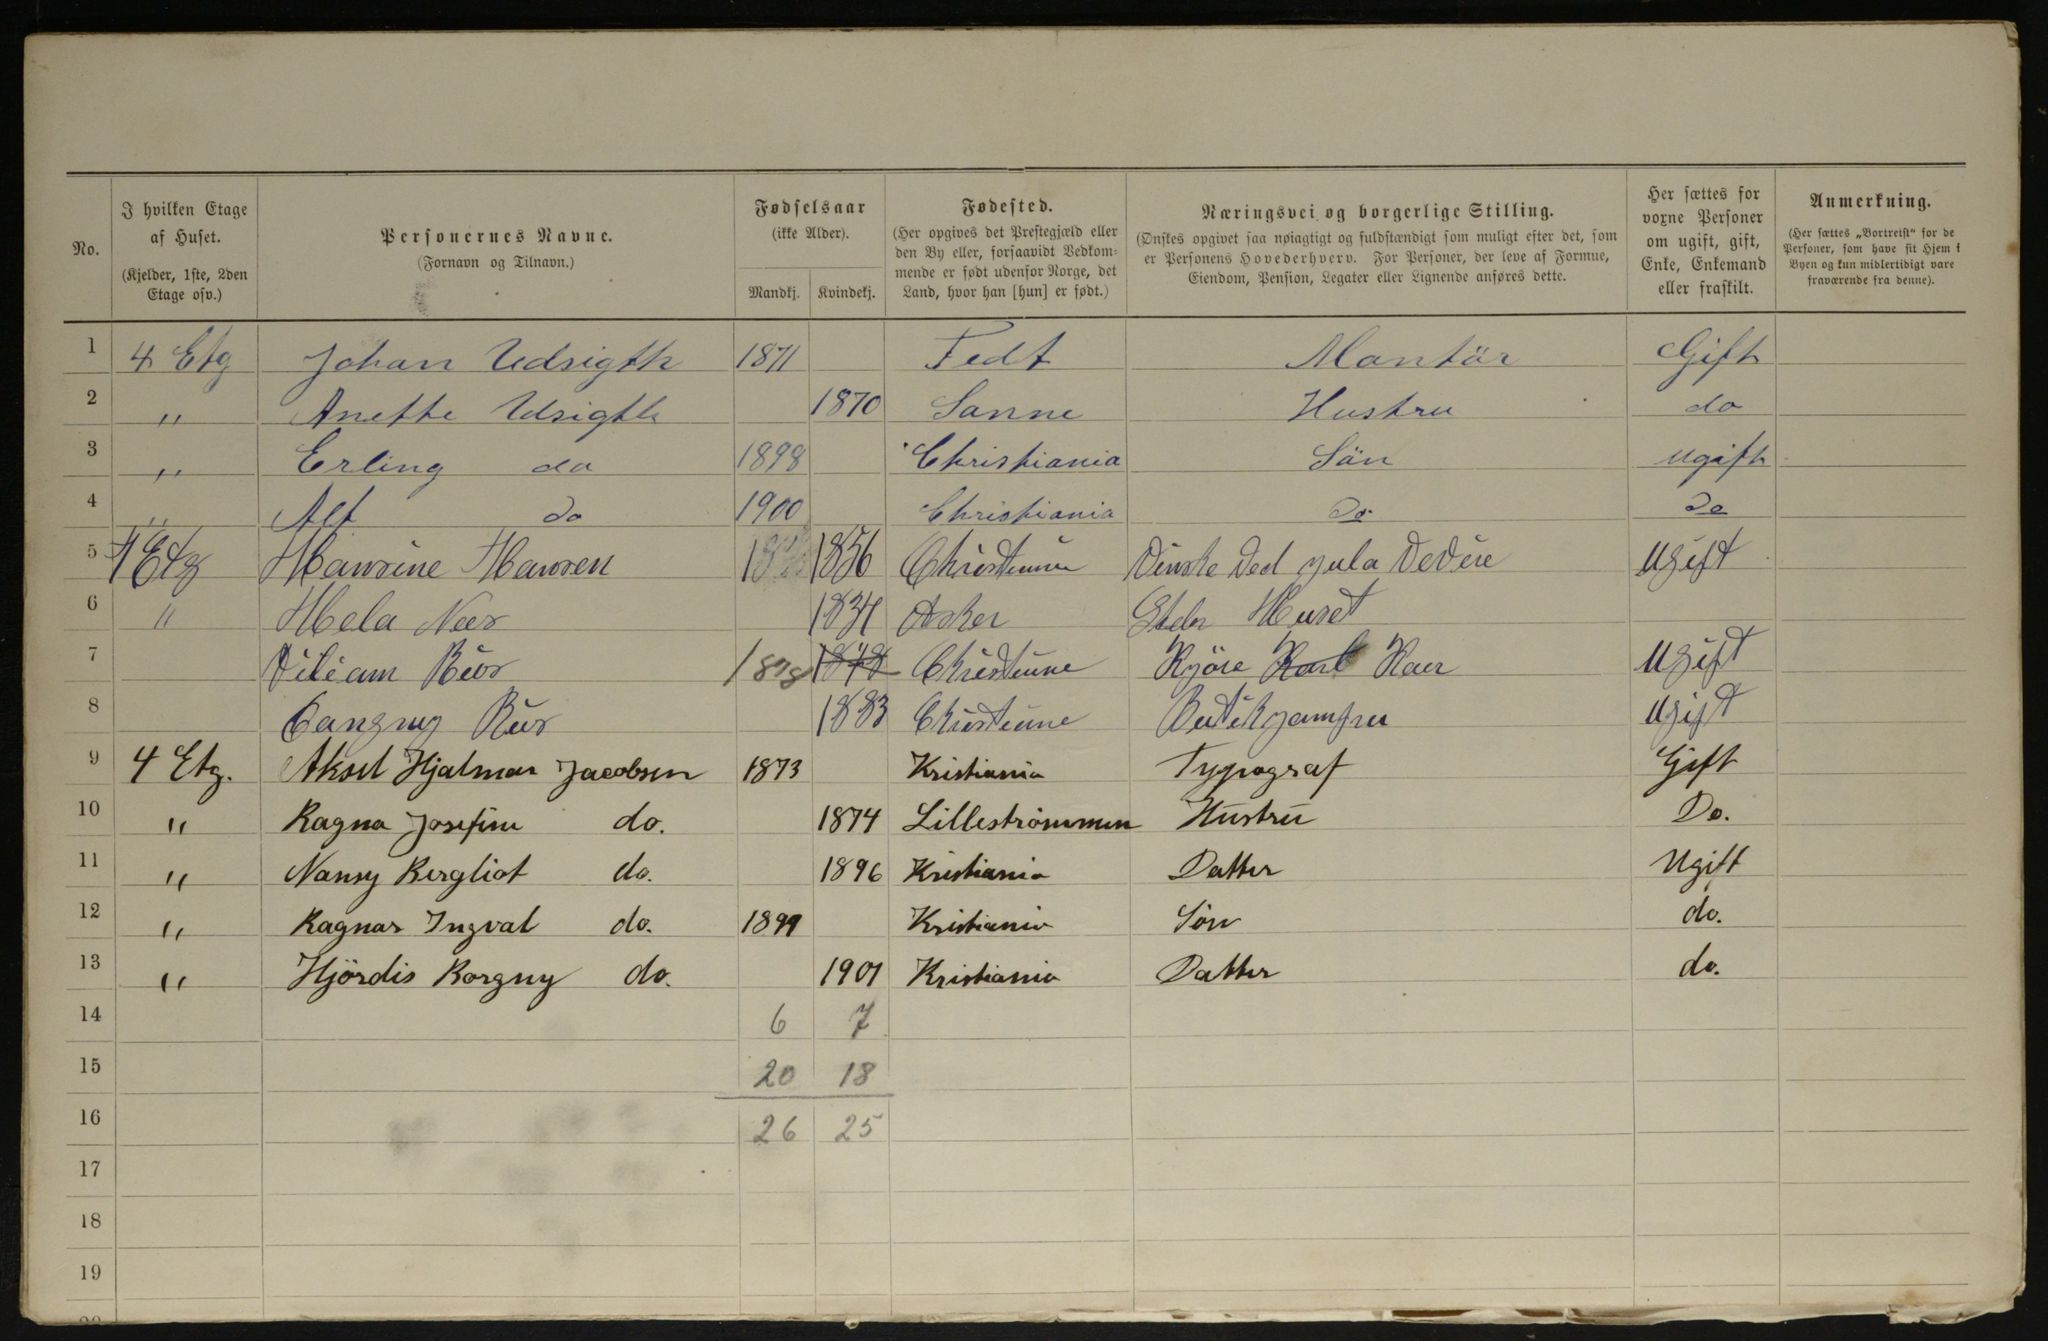 No. | I hvilken Etage af Huset. (Kjelder, 1ste, 2den Etage osv.) | Personernes Navne. (Fornavn og Tilnavn.) | Fødselsaar (ikke Alder). Mandkj. | Kvindekj. | Fødested. (Her opgives det Prestegjæld eller den By eller, forsaavidt Vedkommende er født udenfor Norge, det Land, hvor han [hun] er født.) | Næringsvei og borgerlige Stilling. (Ønskes opgivet saa nøiagtigt og fuldstændigt som muligt efter det, som er Personens Hovederhverv. For Personer, der leve af Formue, Eiendom, Pension, Legater eller Lignende anføres dette.) | Her sættes for voxne Personer om ugift, gift, Enke, Enkemand eller fraskilt. | Anmerkning. (Her sættes „Bortreist“ for de Personer, som have sit Hjem i Byen og kun midlertidigt vare fraværende fra denne).
1 4 Etg Johan Udsigth 1871 Tedt Montör Gift
2 " Anette Udsigth 1870 Sanne Hustru do
3 " Erling do 1898 Christiania Sön ugift
4 " Alf do 1900 Christiania do. do
5 1 Etg Hansine Hansen 1856 Ugift
6 " 1831 Asker Huset
7 1878 1848 Kjöre Karl Ugift
8 1883 Ugift
9 4 Etg. Aksel Hjalmar Jacobsen 1873 Kristiania Typograf Gift
10 " Ragna Josefine do. 1874 Lillestrømmen Hustru Do.
11 " Nansy Bergliot do. 1896 Kristiania Datter Ugift
12 " Ragnar Ingval do. 1899 Kristiania Søn do.
13 " Hjördis Borgny do. 1901 Kristiania Datter do.
14 6 7
15 20 18
16 26 25
17
18
19